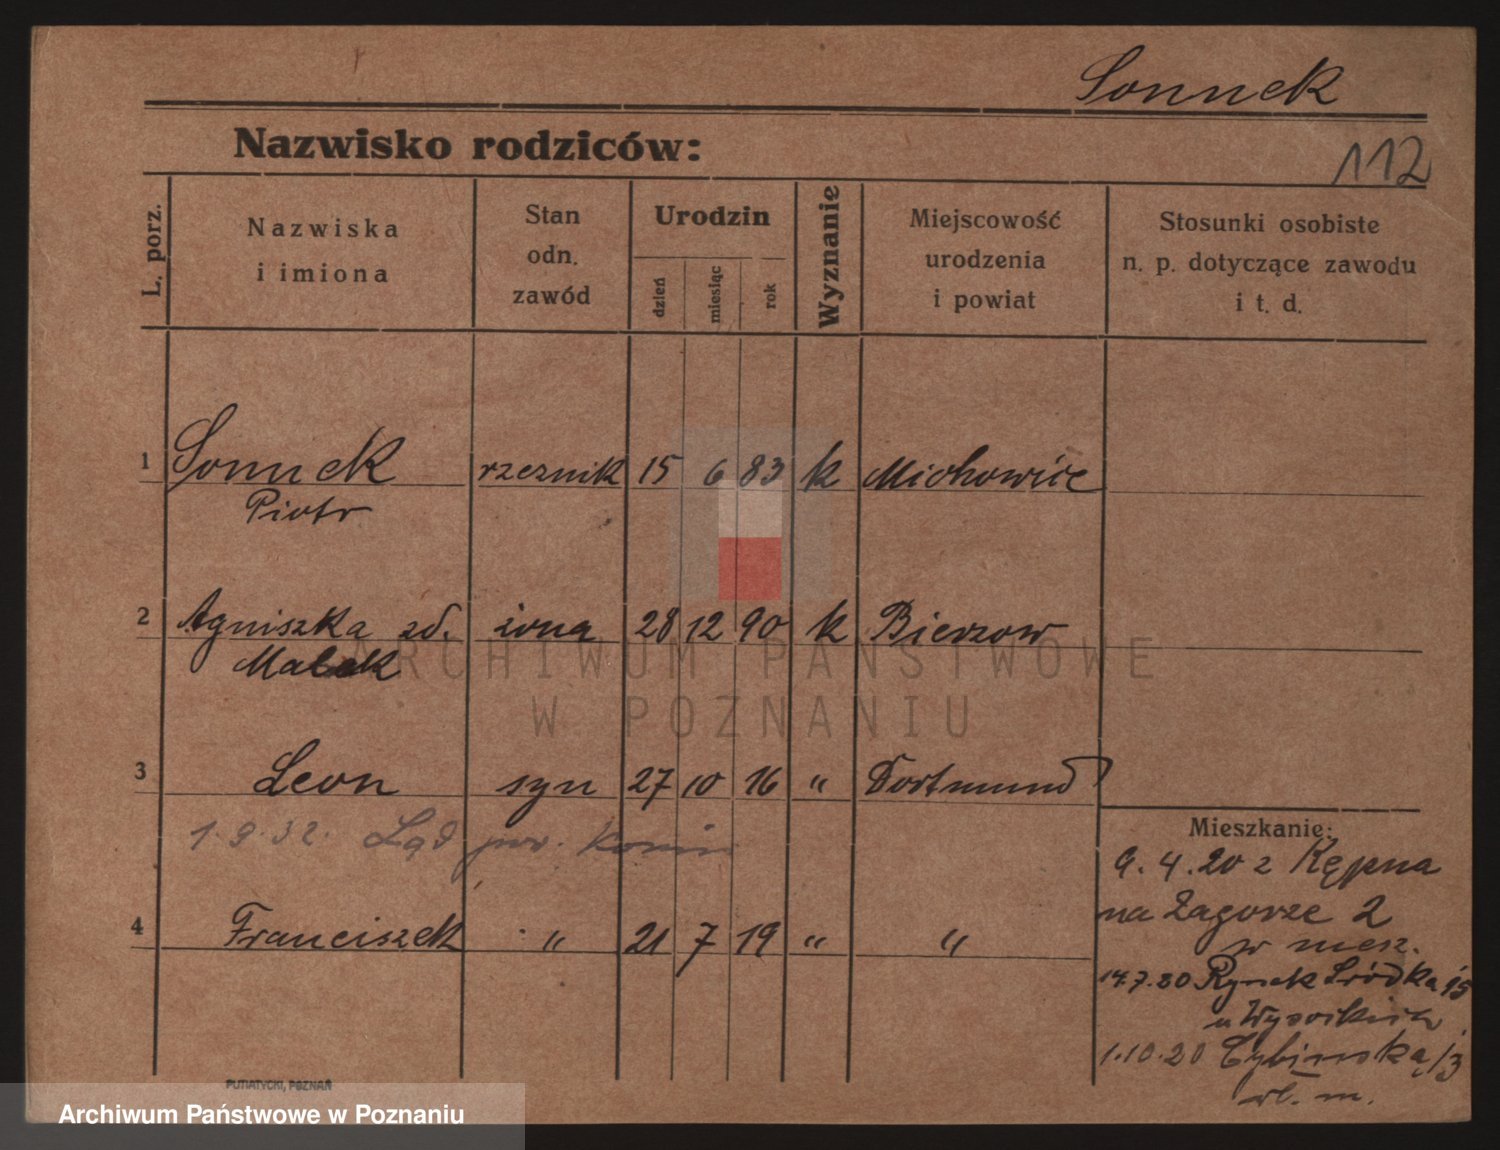 Sonnek
Nazwisko rodziców:
112
L. porz.
Nazwiska
i imiona
Stan
odn.
zawód
Urodzin
dzień
miesiąc
rok
Wyznanie
Miejscowość
urodzenia
i powiat
Stosunki osobiste
n. p. dotyczące zawodu
i t. d.
1 Sonnek rzeznik 15 6 83 k Miechowice
Piotr
2 Agniszka zd. żona 28 12 90 k Bierzow
Malek
ARCHIWUM PAŃSTWOWE
W POZNANIU
3 Leon syn 27 10 16 " Dortmund
1.9.32. Ląd pow. Konin
Mieszkanie:
9.4.20 z Kępna
na Zagorze 2
w miesz.
4 Franciszek " 21 7 19 " "
14.7.20 Rynek Śródka 15
u
1.10.20 Cybińska 13
wł. m.
PUTIATYCKI, POZNAŃ
Archiwum Państwowe w Poznaniu